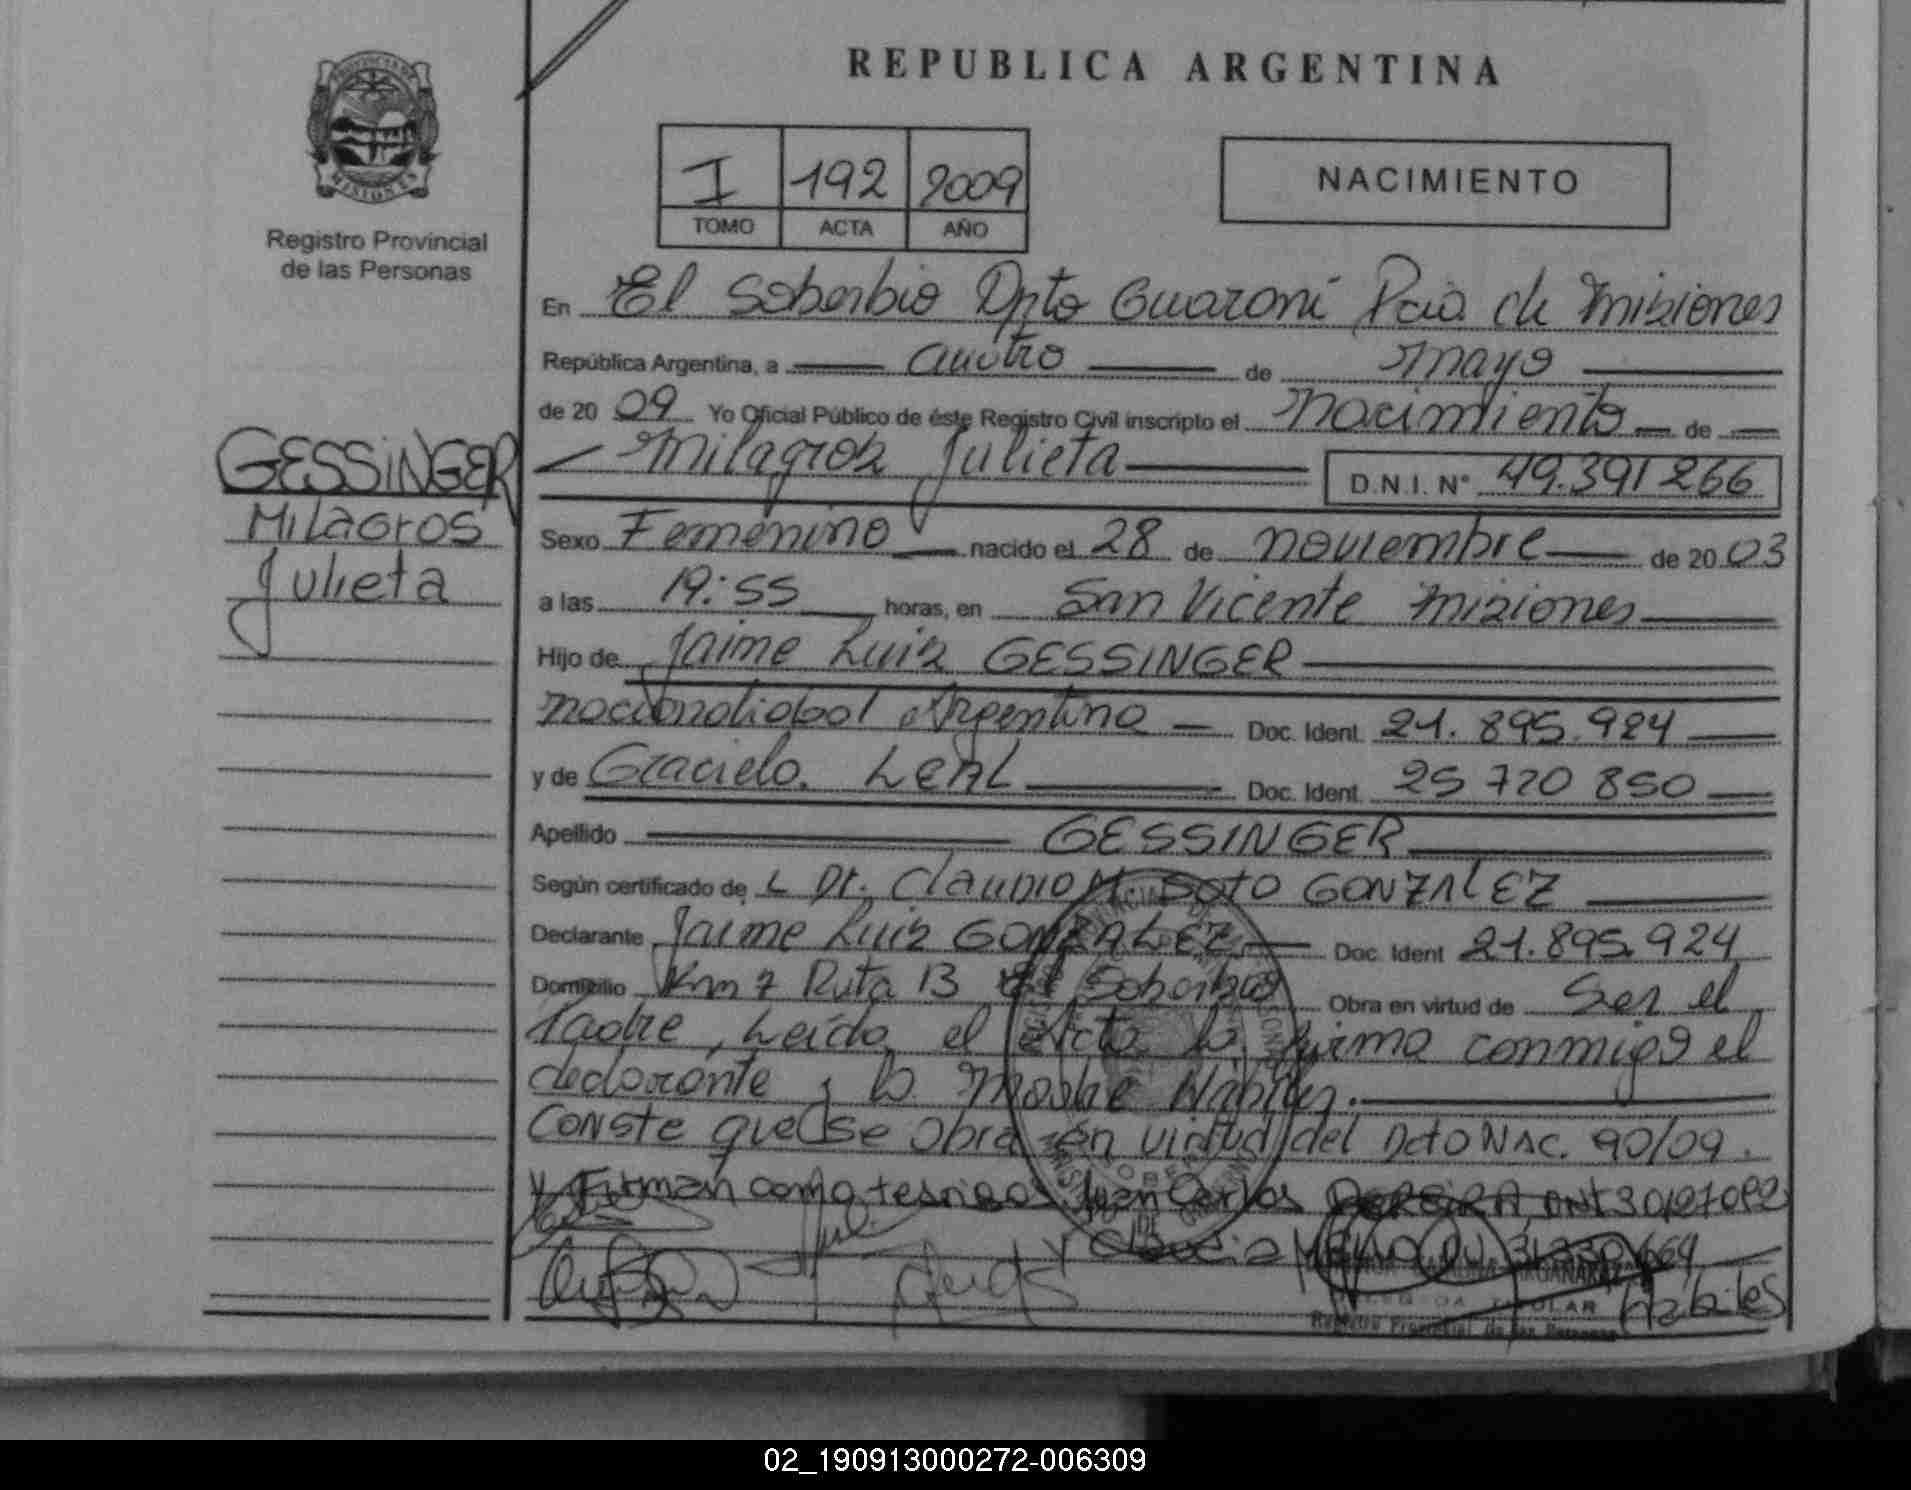 REPUBLICA ARGENTINA
PROVINCIA DE
MISIONES
Registro Provincial
de las Personas
I 192 2009
TOMO ACTA AÑO
NACIMIENTO
En El Soberbio Dpto Guaraní Pcia de Misiones
República Argentina, a cuatro de mayo
de 2009 Yo Oficial Público de éste Registro Civil inscripto el Nacimiento de
Milagros Julieta D.N.I. N° 49.391266
GESSINGER
Milagros
Julieta
Sexo Femenino nacido el 28 de noviembre de 2003
a las 19:55 horas, en San Vicente Misiones
Hijo de Jaime Luis GESSINGER
nacionalidad Argentina Doc. Ident. 21.895.924
y de Graciela LEAL Doc. Ident. 25 720 850
Apellido GESSINGER
Según certificado de L Dr. Claudio M. Soto GONZALEZ
Declarante Jaime Luis GONZALEZ Doc. Ident 21.895.924
Domicilio Km 7 Ruta 13 El Soberbio Obra en virtud de Ser el
Padre, Leída el Acta la firma conmigo el
declarante y la Madre Hábiles.
Conste que se obra en virtud del Dcto NAC. 90/09.
y Firman como testigos Juan Carlos PEREIRA
Y
Habiles
TITULAR
Registro Provincial de las Personas
02_190913000272-006309